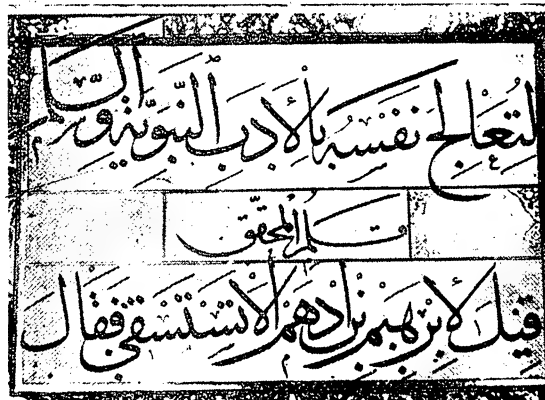 لتعالج نفسه بالأدب النبوية
قلم المحقق
قيل لإبرهيم بن ادهم ألا تستسقي فقال